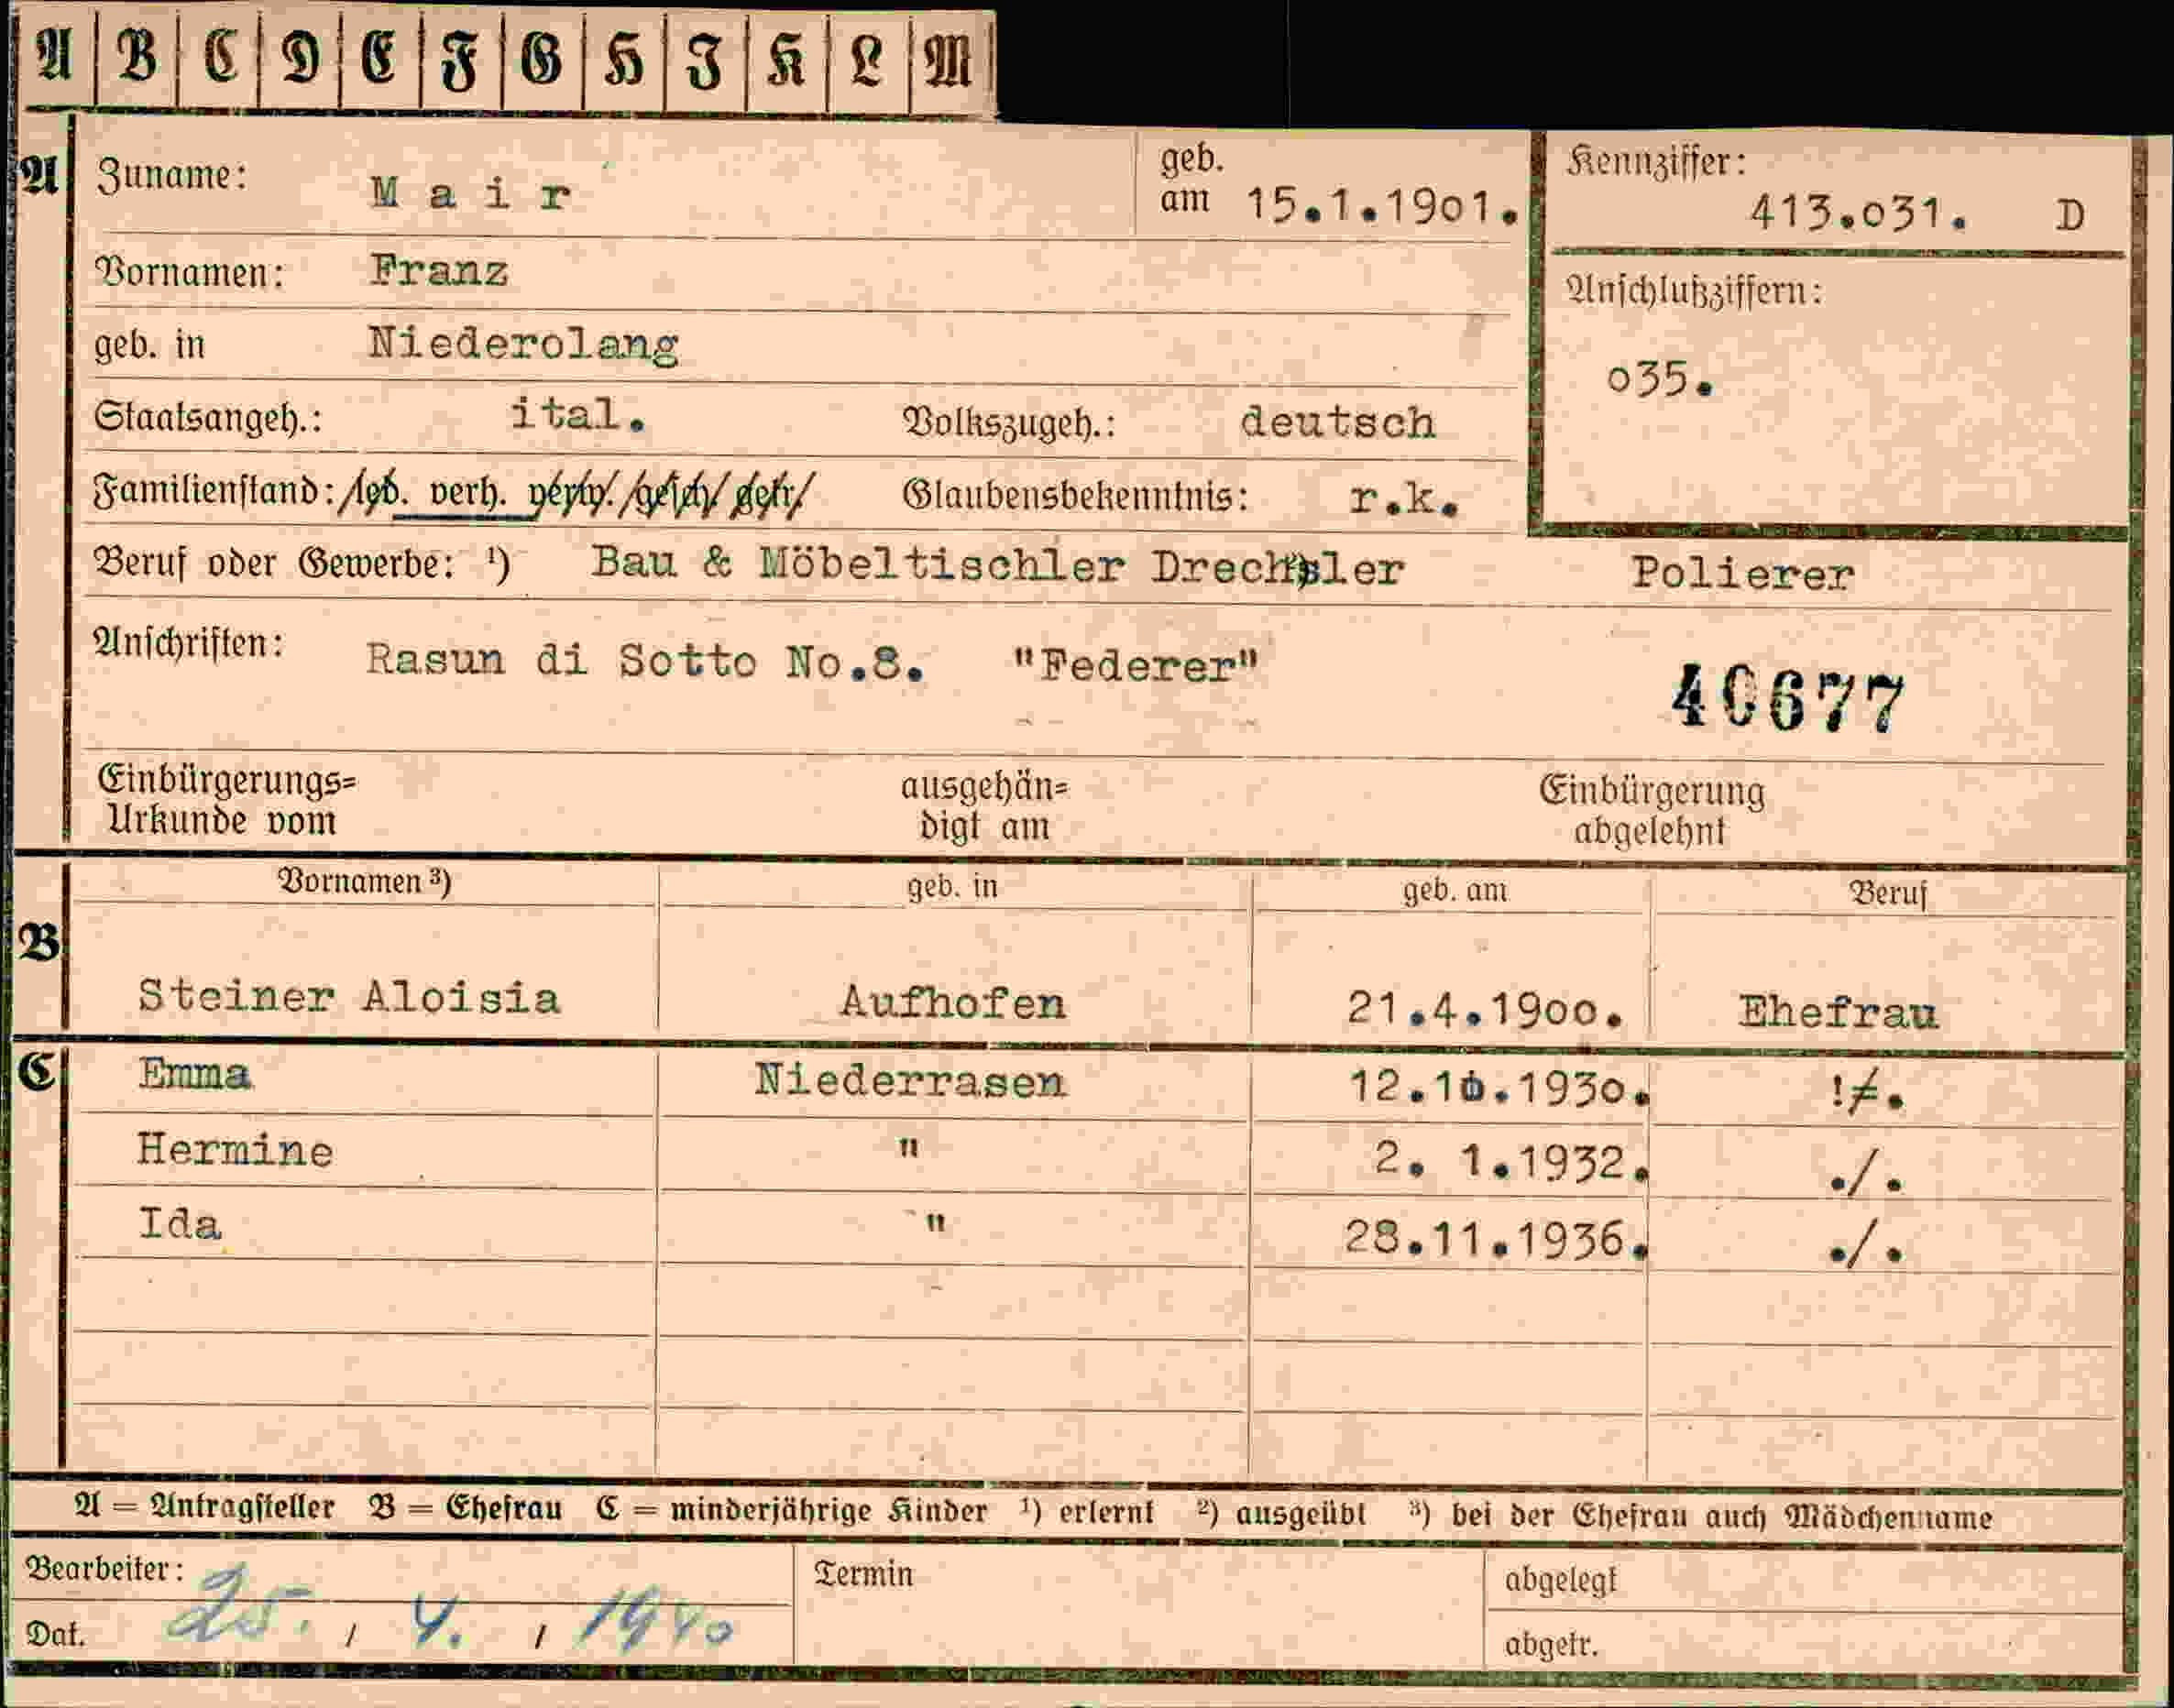 A B C D E F G H I K L M
A Zuname: Mair geb. am 15.1.19o1. Kennziffer: 413.o31. D
Vornamen: Franz Anschlußziffern:
geb. in Niederolang o35.
Staatsangeh.: ital. Volkszugeh.: deutsch
Familienstand: led. verh. verw. gesch. getr. Glaubensbekenntnis: r.k.
Beruf oder Gewerbe: ¹) Bau & Möbeltischler Drechsler Polierer
Anschriften: Rasun di Sotto No.8. "Federer" 40677
Einbürgerungs= ausgehän= Einbürgerung
Urkunde vom digt am abgelehnt
Vornamen ³) geb. in geb. am Beruf
B Steiner Aloisia Aufhofen 21.4.19oo. Ehefrau
C Emma Niederrasen 12.10.193o. !≠.
Hermine " 2. 1.1932. ./.
Ida " 28.11.1936. ./.
A = Antragsteller B = Ehefrau C = minderjährige Kinder ¹) erlernt ²) ausgeübt ³) bei der Ehefrau auch Mädchenname
Bearbeiter: Termin abgelegt
Dat. 25. / 4. / 1940 abgetr.